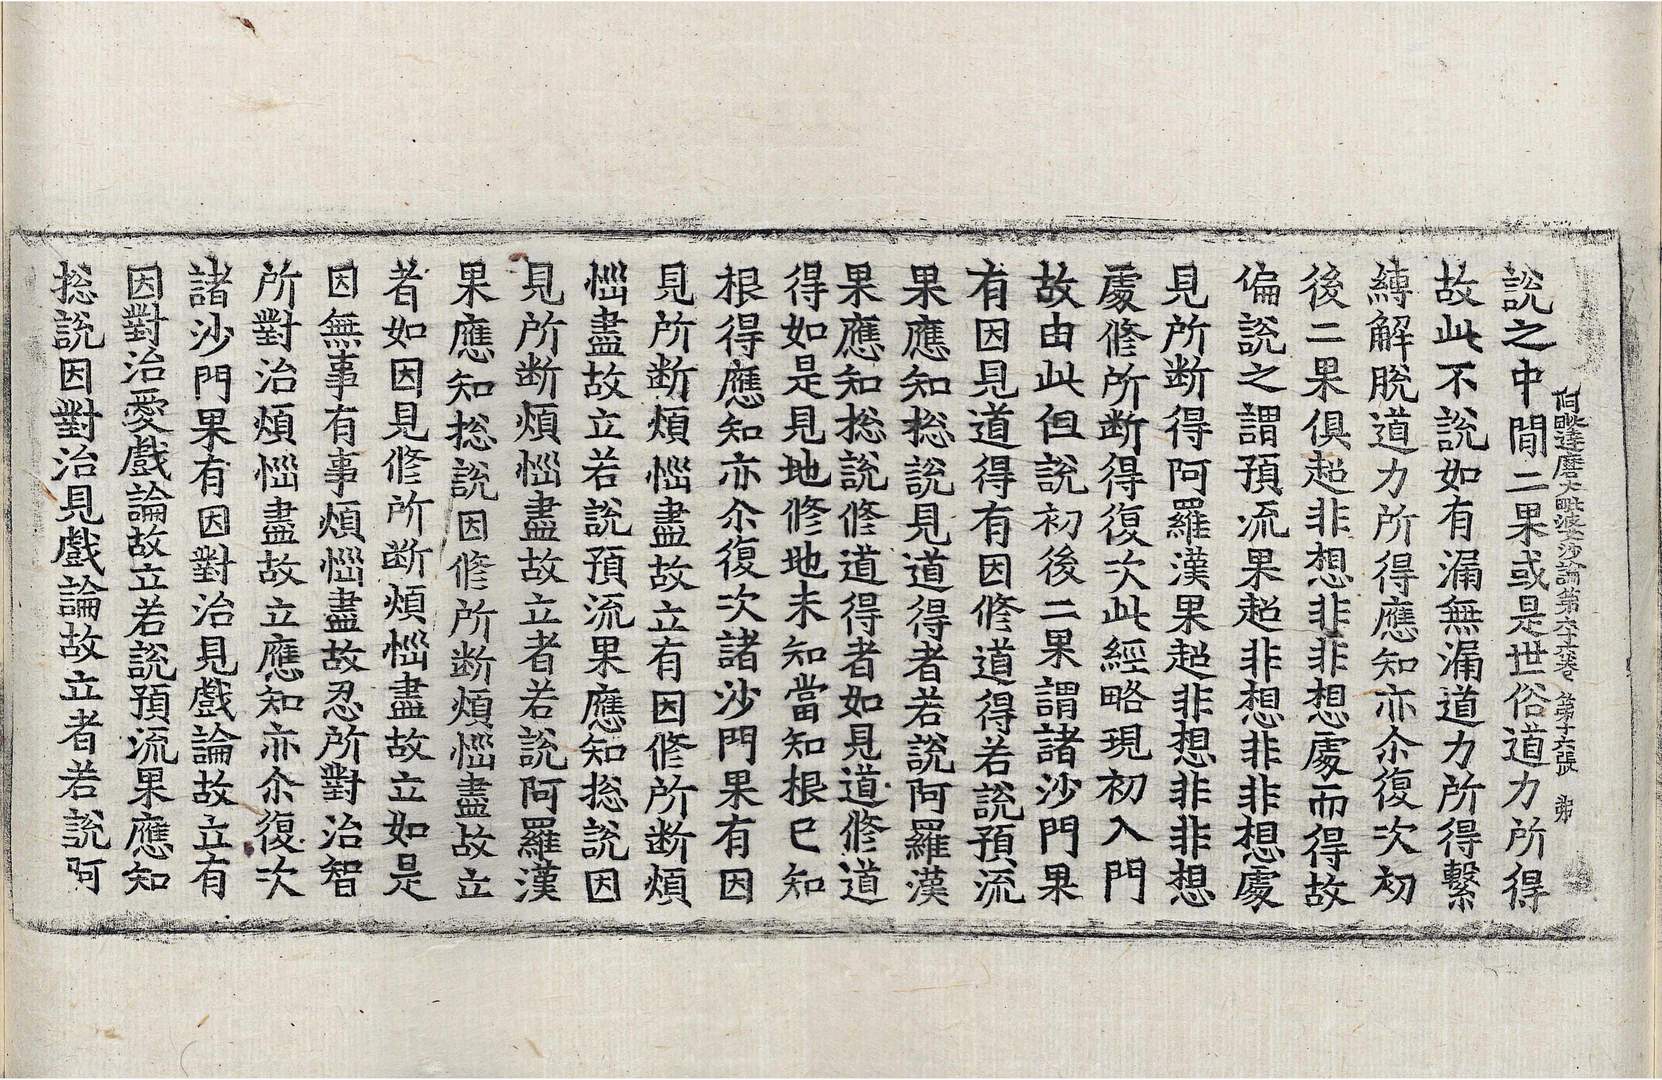 阿毗達磨大毗婆沙論第六十六卷 第十六張 弟
說之中閒二果或是世俗道力所得
故此不說如有漏無漏道力所得繫
縛解脫道力所得應知亦尒復次初
後二果俱超非想非非想處而得故
偏說之謂預流果超非想非非想處
見所斷得阿羅漢果超非想非非想
處修所斷得復次此經略現初入門
故由此但說初後二果謂諸沙門果
有因見道得有因修道得若說預流
果應知捴說見道得者若說阿羅漢
果應知捴說修道得者如見道修道
得如是見地修地未知當知根已知
根得應知亦尒復次諸沙門果有因
見所斷煩惱盡故立有因修所斷煩
惱盡故立若說預流果應知捴說因
見所斷煩惱盡故立者若說阿羅漢
果應知捴說因修所斷煩惱盡故立
者如因見修所斷煩惱盡故立如是
因無事有事煩惱盡故忍所對治智
所對治煩惱盡故立應知亦尒復次
諸沙門果有因對治見戲論故立有
因對治愛戲論故立若說預流果應知
捴說因對治見戲論故立者若說阿